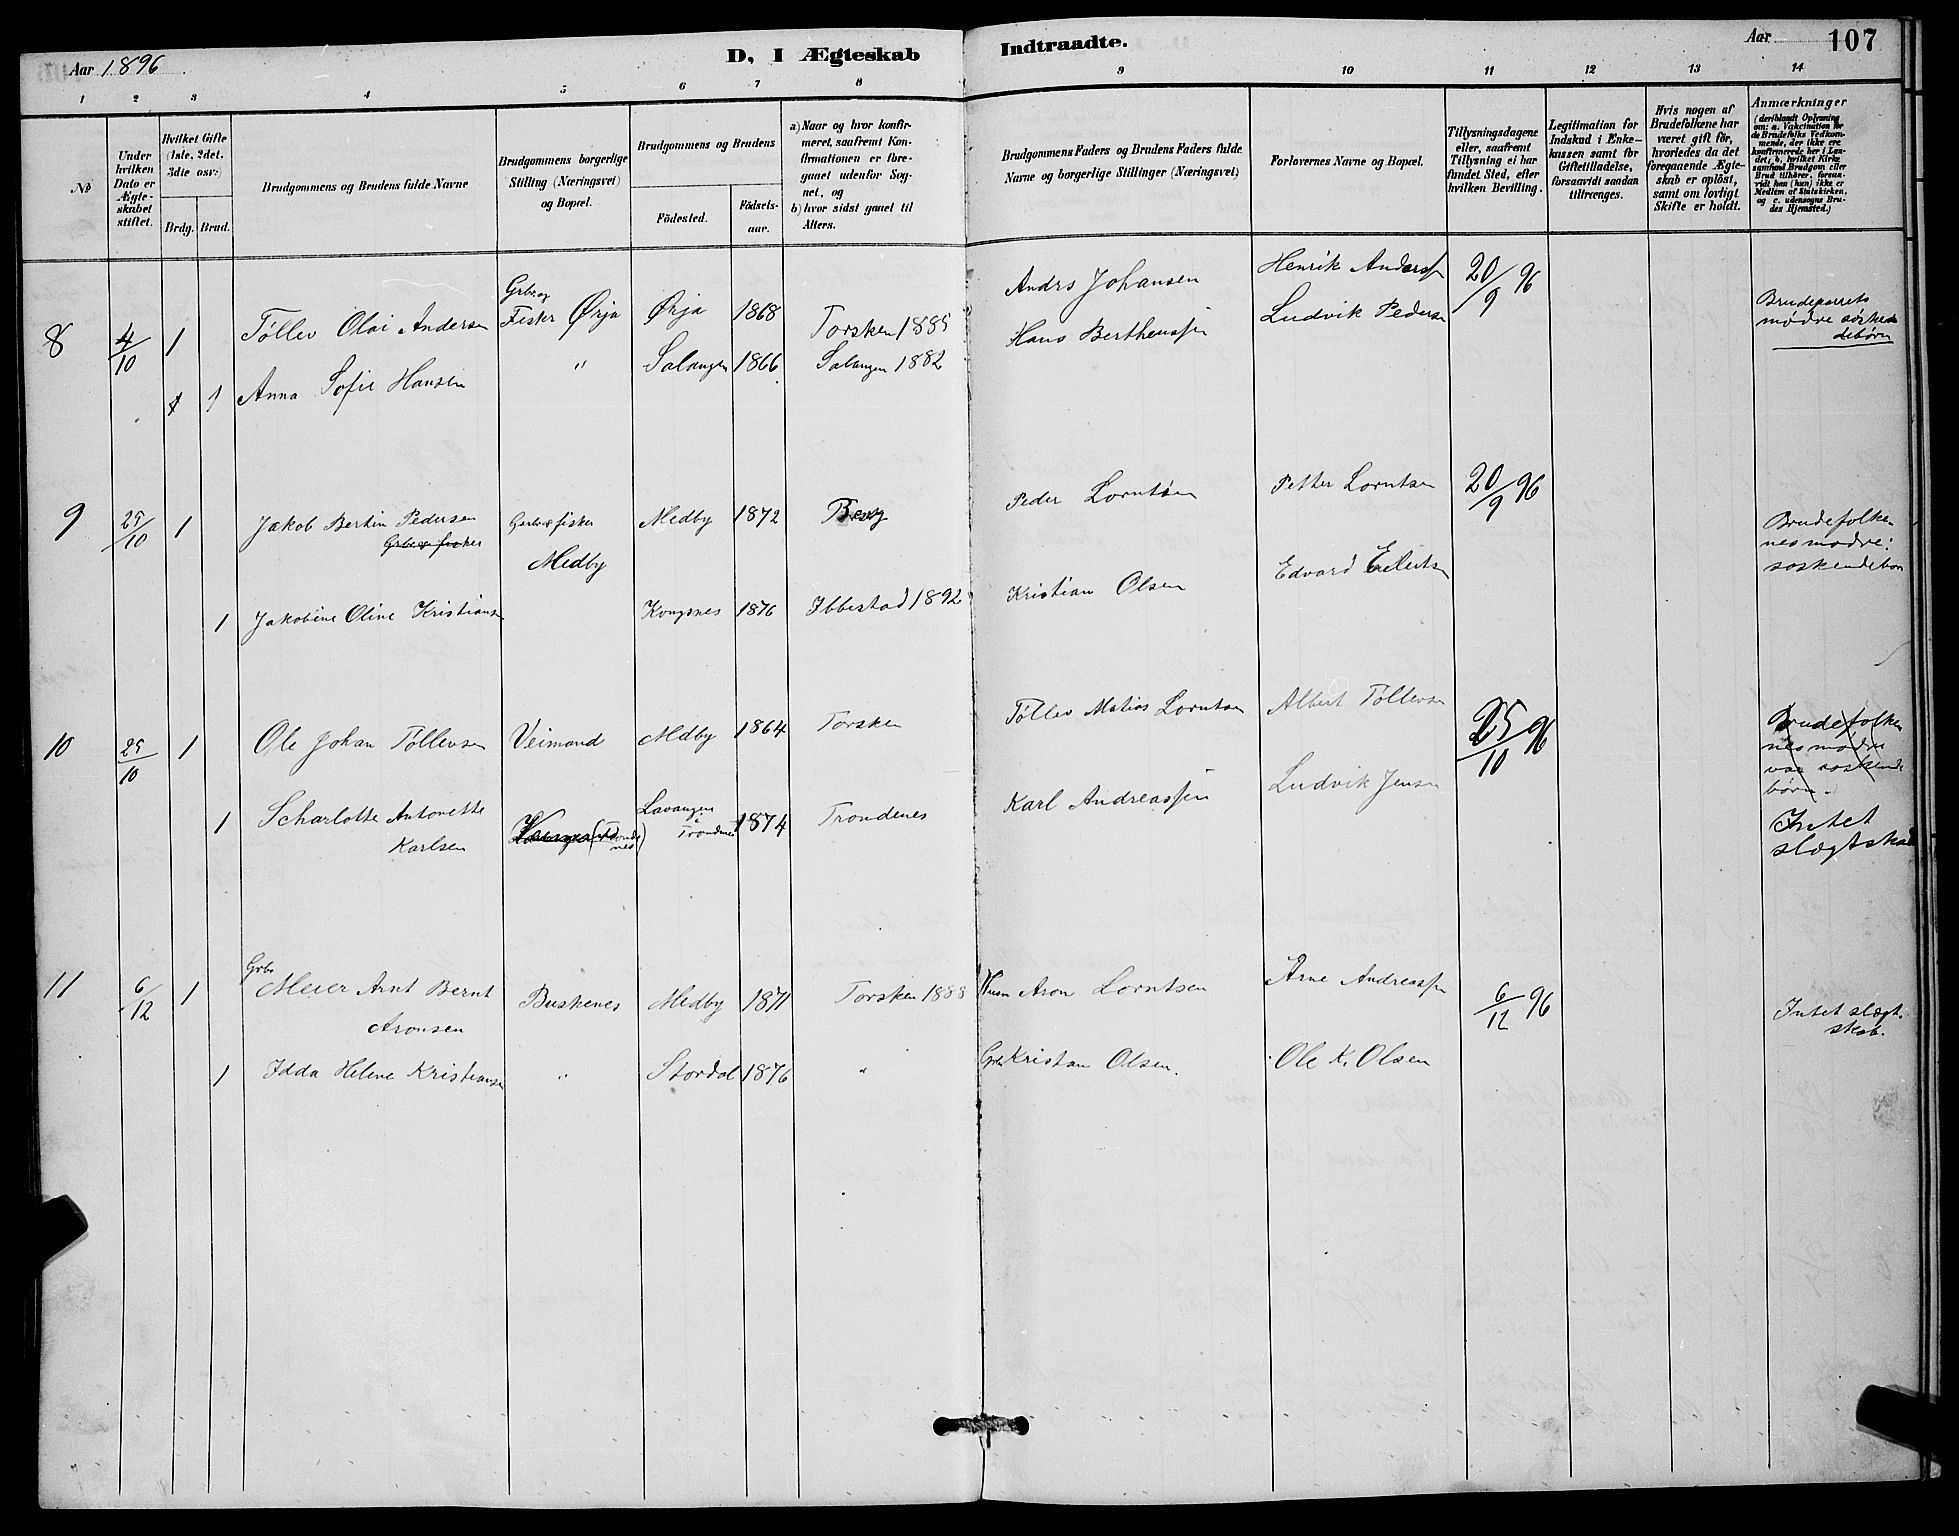 Aar 1896
D, I Ægteskab Indtraadte.
Aar 107
1 2 3 4 5 6 7 8 9 10 11 12 13 14
No
Under hvilken Dato er Ægteskabet stiftet.
Hvilket Gifte (1ste, 2det, 3die osv:)
Brdg. Brud.
Brudgommens og Brudens fulde Navne
Brudgommens borgerlige Stilling (Næringsvei) og Bopæl.
Brudgommens og Brudens
Födested.
Födsels-aar.
a) Naar og hvor konfirmeret, saafremt Konfirmationen er foregaaet udenfor Sognet, og
b) hvor sidst gaaet til Alters.
Brudgommens Faders og Brudens Faders fulde Navne og borgerlige Stillinger (Næringsvei)
Forlovernes Navne og Bopæl.
Tillysningsdagene eller, saafremt Tillysning ei har fundet Sted, efter hvilken Bevilling.
Legitimation for Indskud i Enkekassen samt for Giftetilladelse, forsaavidt saadan tiltrænges.
Hvis nogen af Brudefolkene har været gift før, hvorledes da det foregaaende Ægteskab er oplöst, samt om lovligt Skifte er holdt.
Anmærkninger
(deriblandt Oplysning om: a. Vakcination for de Brudefolks Vedkommende, der ikke ere konfirmerede her i Landet, b. hvilket Kirkesamfund Brudgom eller Brud tilhörer, forsavidt han (hun) ikke er Medlem af Statskirken, og c. udensogns Brudes Hjemsted.)
8 4/10 1 Tøllev Olai Andersen Grbr og Fisker Ørja Ørja 1868 Torsken 1885 Andrs Johansen Henrik Anderssn 20/9 96 Brudeparrets mødre søskendebørn
1 Anna Sofie Hansen " Salangen 1866 Salangen 1882 Hans Berthenssen Ludvik Pedersen
9 25/10 1 Jakob Bertin Pedersen Gbr og fisker Medby Medby 1872 Berg Peder Lorntsen Petter Lorntsen 20/9 96 Brudefolkenes mødre: søskendebørn
Gbr og fisker
1 Jakobine Oline Kristiansn Kongsnes 1876 Ibbestad 1892 Kristian Olsen Edvard Eilertsn
10 25/10 1 Ole Johan Tøllevsen Veimand Medby 1864 Torsken Tøllev Matias Lorntsen Albert Tøllevsn 25/10 96 Brudefolkenes mødre var søskendebørn.
1 Scharlotte Antonette Karlsen (Trondenes) Lavangen i Trondenes 1874 Trondenes Karl Andreassen Ludvik Jensen Intet slægtskab
11 6/12 1 Grbr Meier Arnt Bernt Aronsen Buskenes Medby 1871 Torsken 1888 Husm Aron Lorntsen Arne Andreassen 6/12 96 Intet slægtskab.
1 Idda Helene Kristiansn " Stordal 1876 " Grbr Kristan Olsen. Ole K. Olsen